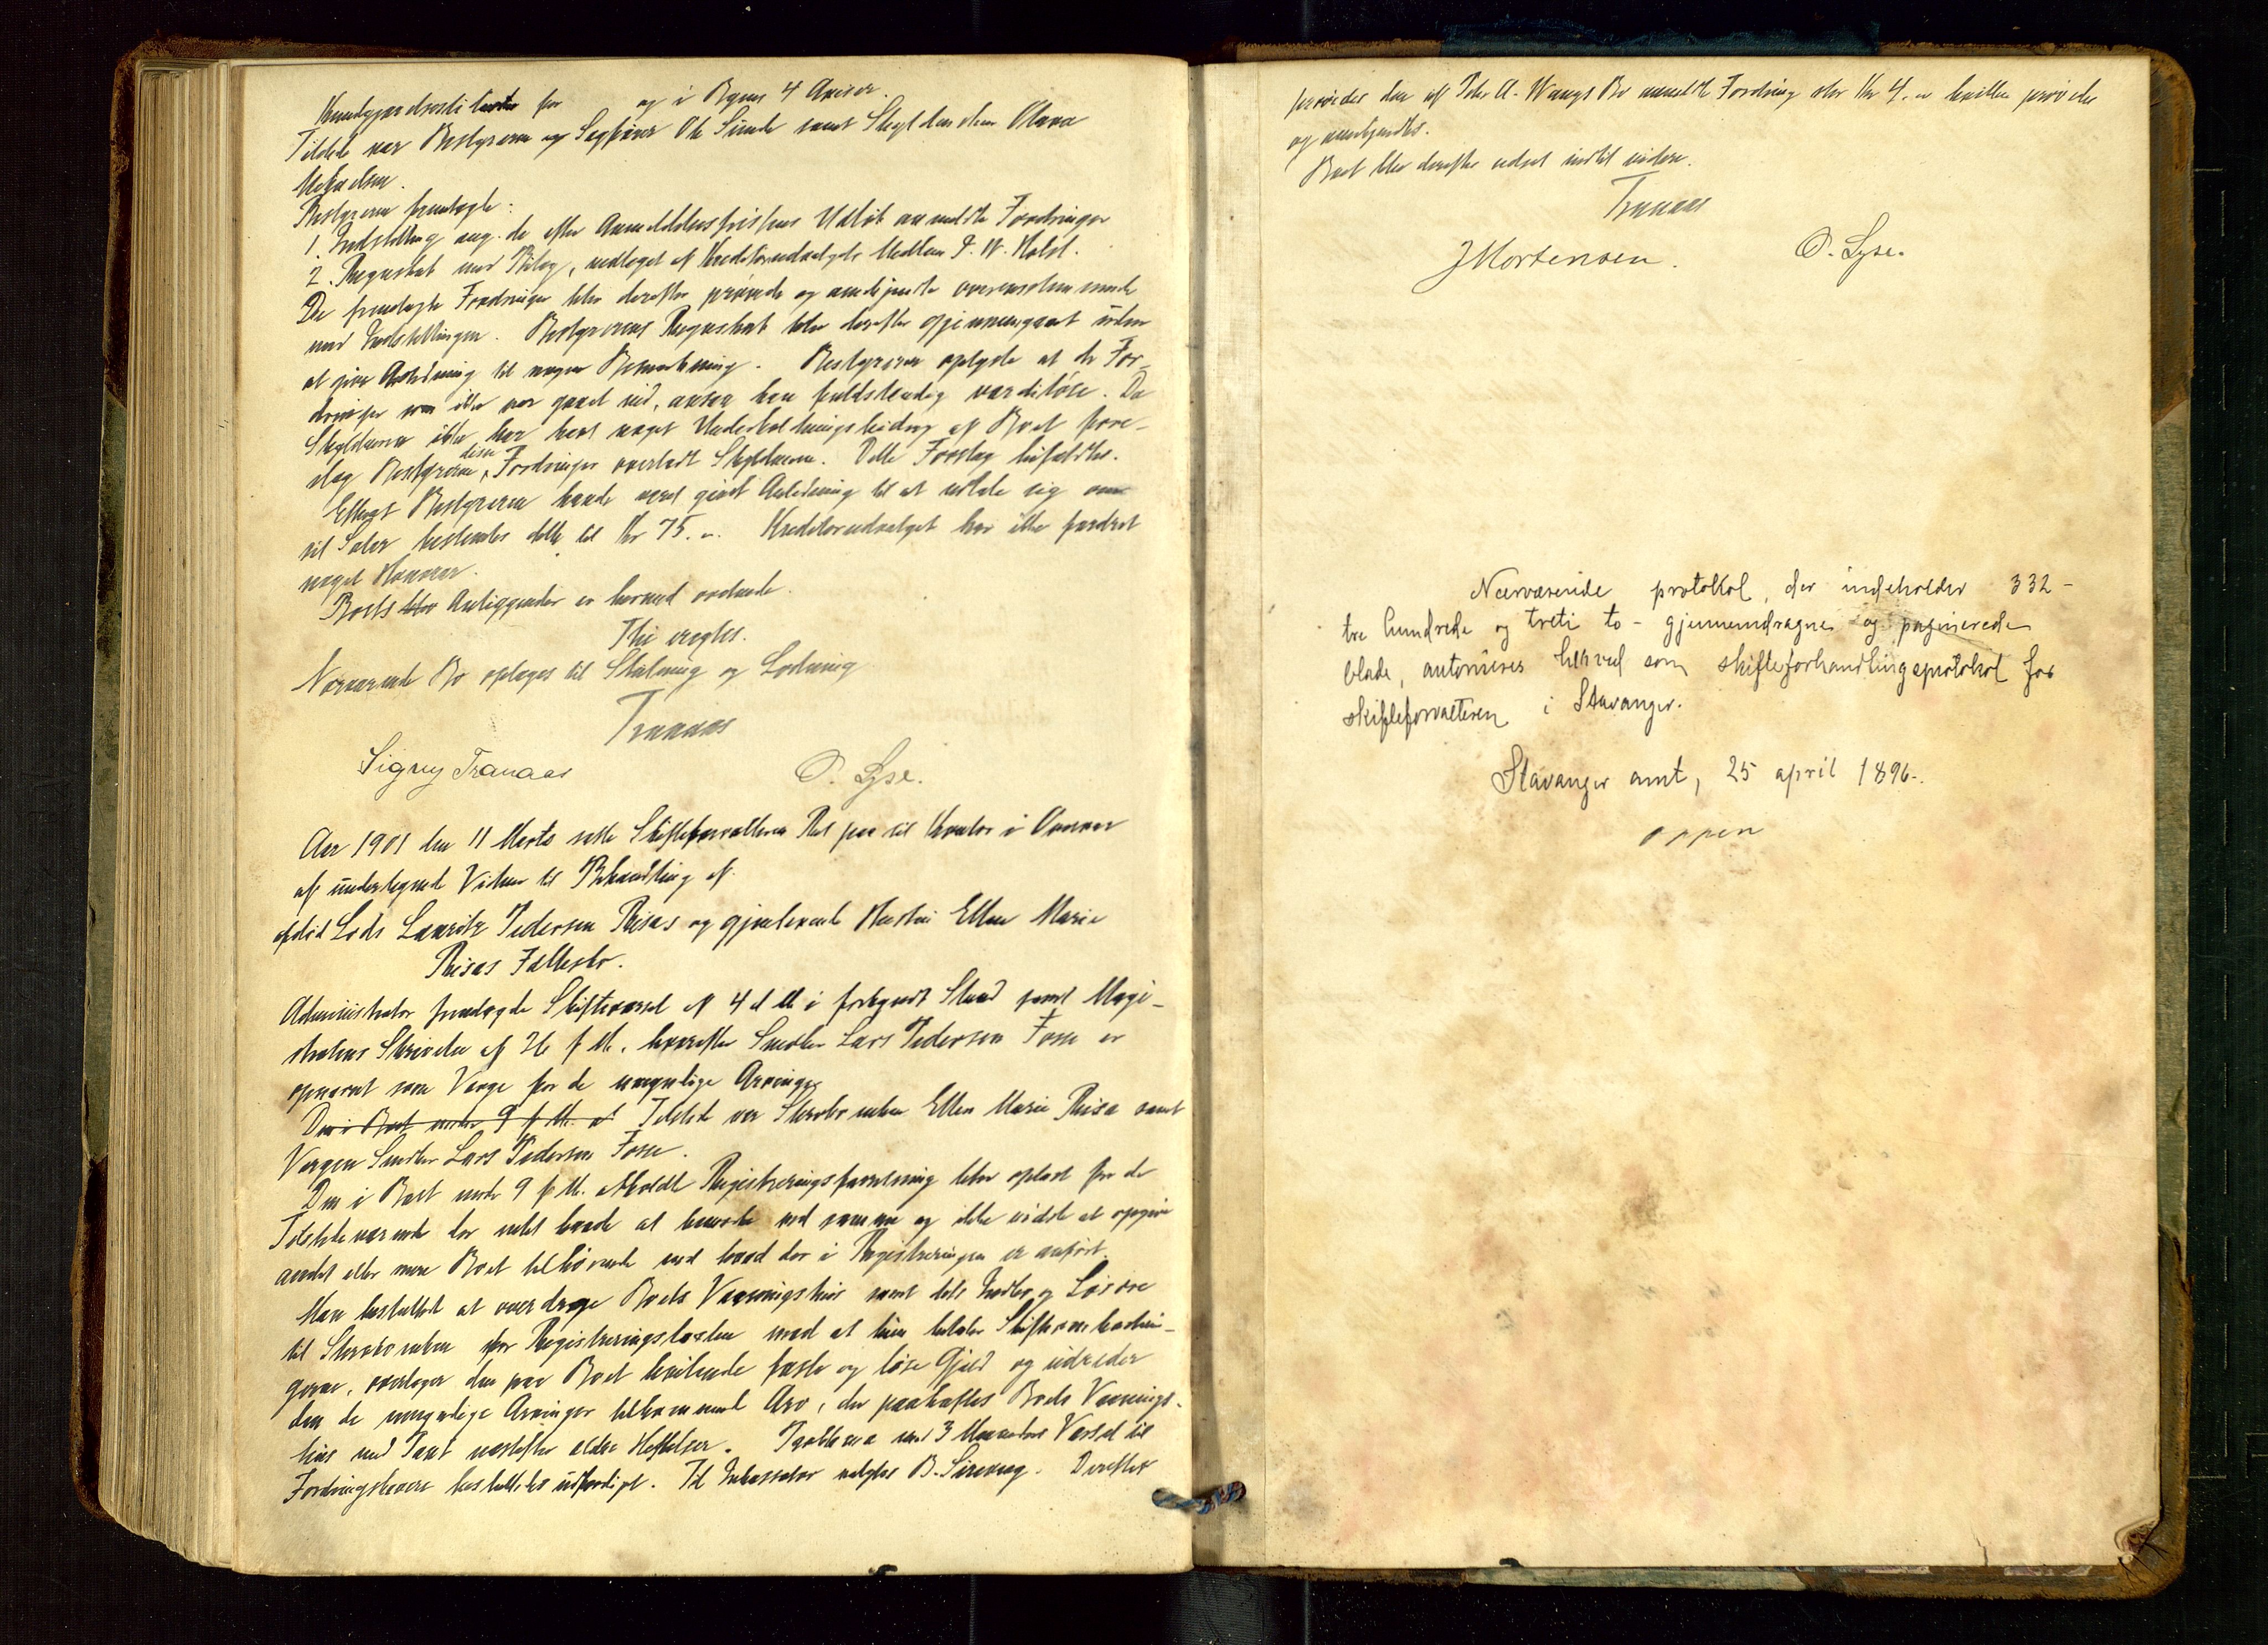 Kundgjørelsestilladelse for og i Byens 4 Aviser.
Tilstede var Bestyreren og Sagfører Ole Sunde samt Skyldneren Olava
Mikaelsen.
Bestyreren fremlagde:
1. Indstilling ang. de efter Anmeldelsesfristens Udløb anmeldte Fordringer
2. Regnskab med Bilag, vedtaget af Kreditorudvalgets Medlem P. W. Holst.
De fremlagte Fordringer blev derefter prøvede og anerkjendte overensstemmende
med Indstillingen. Bestyrerens Regnskab blev derefter gjennemgaaet uden
at give Anledning til nogen Bemærkning. Bestyreren oplyste at de For-
dringer som ikke var gaaet ind, ansaa han fuldstændig værdiløse. Da
Skyldneren ikke har havt noget Underholdningsbidrag af Boet fore-
slog Bestyreren disse Fordringer overladt Skyldneren. Dette Forslag bifaldtes.
Efterat Bestyreren havde været givet Anledning til at udtale sig om
sit Salær bestemtes dette til Kr 75. Kreditorudvalget har ikke fordret
noget Honorar.
Boets Anliggender er hermed ordnede.
Thi eragtes:
Nærværende Bo optages til Slutning og Lodning
Tranaas
Signy Tranaas O. Lyse.
Aar 1901 den 11 Marts satte Skifteforvalteren Ret paa sit Kontor i Overvær
af undertegnede Vidner til Behandling af
afdød Lods Lauritz Pedersen Risas og gjenlevende Hustru Ellen Marie
Risas Fællesbo.
Administrator fremlagde Skiftevarsel af 4 d M i forkyndt Stand samt Magi-
stratens Skrivelse af 26 f M. hvorefter Snedker Lars Pedersen Fosse er
opnævnt som Værge for de umyndige Arvinger
Den i Boet under 9 f M. af Tilstede var Skrøbo enken Ellen Marie Risa samt
Værgen Snedker Lars Pedersen Fosse.
Den i Boet under 9 f M. afholdte Registreringsforretning blev oplæst for de
Tilstedeværende der intet havde at bemærke ved samme og ikke vidste at opgive
andet eller mere Boet tilhørende end hvad der i Registreringen er anført.
Man besluttede at overdrage Boets Vaaningshus samt dets Indbo og Løsøre
til enken for Registreringstaksten mod at hun betaler Skifteomkostnin-
gerne, overtager den paa Boet hvilende faste og løse Gjæld og udreder
den de umyndige Arvinger tilkommende Arv, der paahæftes Boets Vaanings-
hus med Pant næstefter ældre Hæftelser. Proklama med 3 Maaneders Varsel til
Fordringshavere besluttedes udfærdiget. Til Inkassator valgtes B. Sirevaag. Derefter
prøvedes den af Peder A. Wangs Bo anmeldte Fordring stor Kr 4. hvilken prøvedes
og anerkjendtes.
Boet blev derefter udsat indtil videre.
Tranaas
J Mortensen. O. Lyse.
Nærværende protokol, der indeholder 332 -
tre hundrede og treti to - gjennemdragne og paginerede
blade, autoriseres herved som skifteforhandlingsprotokol for
skifteforvalteren i Stavanger.
Stavanger amt, 25 april 1896.
Oppen